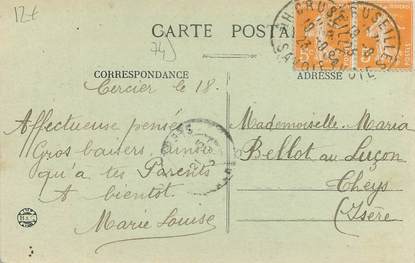 12€
74)
CARTE POSTALE
CORRESPONDANCE
ADRESSE
CRUSEILLES
Cercier le 18.
Affectueuse pensée
Gros baisers, ainsi
qu'à tes Parents
A bientôt.
Marie Louise
Mademoiselle Maria
Bellot au Luçon
Cheys
(Isère)